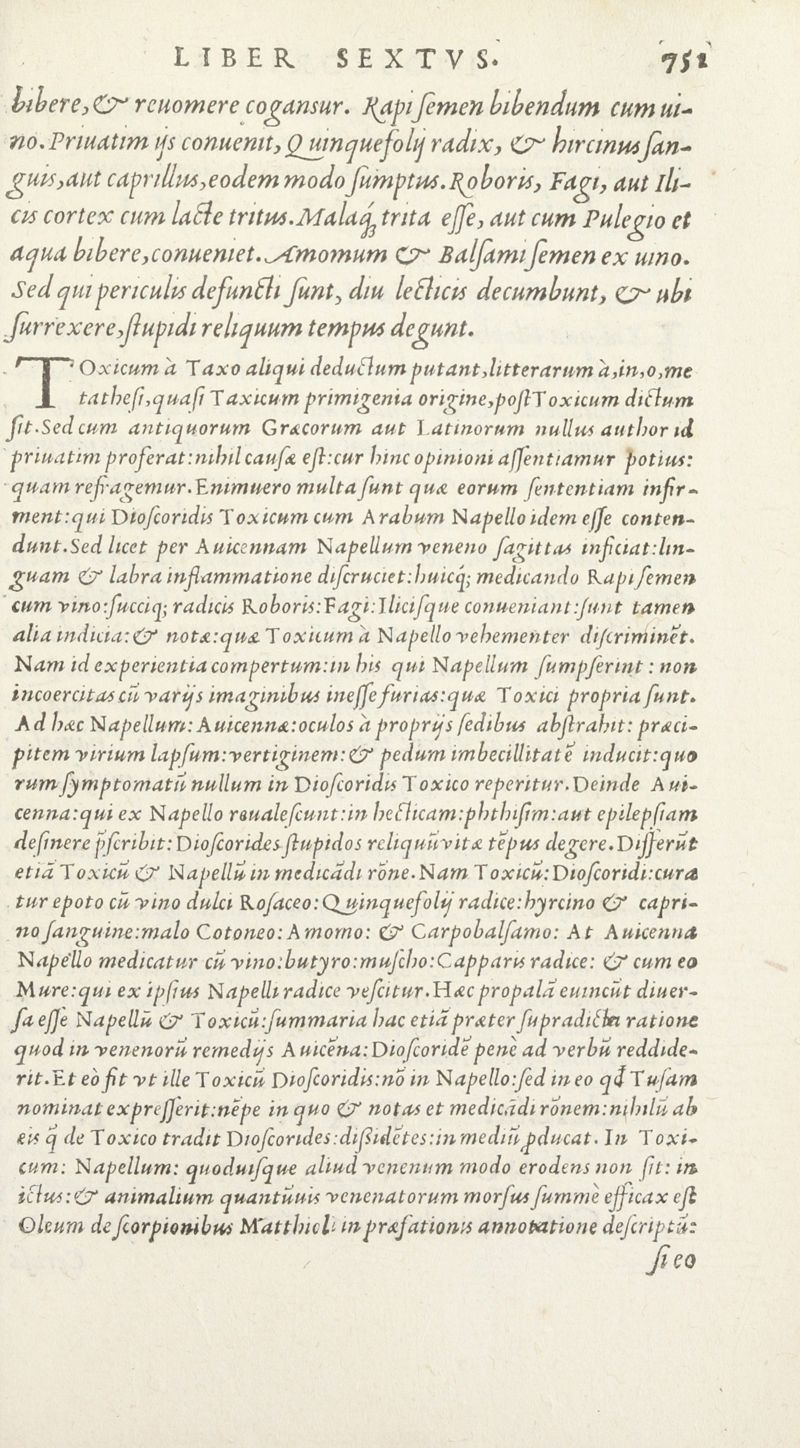 LIBER SEXTVS. 751
bibere, & reuomere cogansur. Rapi ſemen bibendum cum ui-
no. Priuatim ijs conuenit, Quinquefolij radix, & hircinus ſan-
guis, aut caprillus, eodem modo ſumptus. Roboris, Fagi, aut Ili-
cis cortex cum lacte tritus. Malaq́; trita eſſe, aut cum Pulegio et
aqua bibere, conueniet. Amomum & Balſami ſemen ex uino.
Sed qui periculis defuncti ſunt, diu lecticis decumbunt, & ubi
ſurrexere, ſtupidi reliquum tempus degunt.
TOxicum à Taxo aliqui deductum putant, litterarum à, in, o, me
tatheſi, quaſi Taxicum primigenia origine, poſt Toxicum dictum
ſit. Sed cum antiquorum Græcorum aut Latinorum nullus author id
priuatim proferat: nihil cauſæ eſt: cur hinc opinioni aſſentiamur potius:
quam refragemur. Enimuero multa ſunt quæ eorum ſententiam infir-
ment: qui Dioſcoridis Toxicum cum Arabum Napello idem eſſe conten-
dunt. Sed licet per Auicennam Napellum veneno ſagittas inficiat: lin-
guam & labra inflammatione diſcruciet: huicq́; medicando Rapi ſemen
cum vino: ſucciq; radicis Roboris: Fagi: Iliciſque conueniant: ſunt tamen
alia indicia: & notæ: quæ Toxicum à Napello vehementer diſcriminēt.
Nam id experientia compertum: in his qui Napellum ſumpſerint: non
incoercitas cū varijs imaginibus ineſſe furias: quæ Toxici propria ſunt.
Ad hæc Napellum: Auicennæ: oculos à proprijs ſedibus abſtrahit: præci-
pitem virium lapſum: vertiginem: & pedum imbecillitatē inducit: quo
rum ſymptomatū nullum in Dioſcoridis Toxico reperitur. Deinde Aui-
cenna: qui ex Napello reualeſcunt: in hecticam: phthiſim: aut epilepſiam
deſinere p̃ſcribit: Dioſcorides ſtupidos reliquū vitæ tēpus degere. Differūt
etiā Toxicū & Napellū in medicādi rōne. Nam Toxicū: Dioſcoridi: cura
tur epoto cū vino dulci Roſaceo: Quinquefolij radice: hyrcino & capri-
no ſanguine: malo Cotoneo: Amomo: & Carpobalſamo: At Auicenna
Napello medicatur cū vino: butyro: muſcho: Capparis radice: & cum eo
Mure: qui ex ipſius Napelli radice veſcitur. Hæc propalā euincūt diuer-
ſa eſſe Napellū & Toxicū: ſummaria hac etiā præter ſupradicta ratione
quod in venenorū remedijs Auicēna: Dioſcoridē penè ad verbū reddide-
rit. Et eò fit vt ille Toxicū Dioſcoridis: nō in Napello: ſed in eo qđ Tuſam
nominat expreſſerit: nēpe in quo & notas et medicādi rōnem: nihilū ab
eis q̄ de Toxico tradit Dioſcorides: diſſidētes: in mediū ꝓducat. In Toxi-
cum: Napellum: quoduiſque aliud venenum modo erodens non ſit: in
ictus: & animalium quantūuis venenatorum morſus ſummè efficax eſt
Oleum de ſcorpionibus Matthioli in præfationis annotatione deſcriptū:
ſi eo